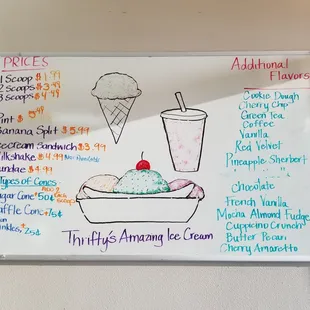 PRICES
1 Scoop $1.99
2 Scoops $3.99
3 Scoops $4.99
Pint $
Banana Split $5.99
Icecream Sandwich $3.99
Milkshake $4.99
Sundae $4.99
Types of Cones
Sugar Cone 50¢
Waffle Cone 75¢
25¢
Thrifty's Amazing Ice Cream
Additional
Flavors
Cookie Dough
Cherry Chip
Green Tea
Coffee
Vanilla
Red Velvet
Pineapple Sherbert
Chocolate
French Vanilla
Mocha Almond Fudge
Cuppicino Crunch
Butter Pecan
Cherry Amaretto